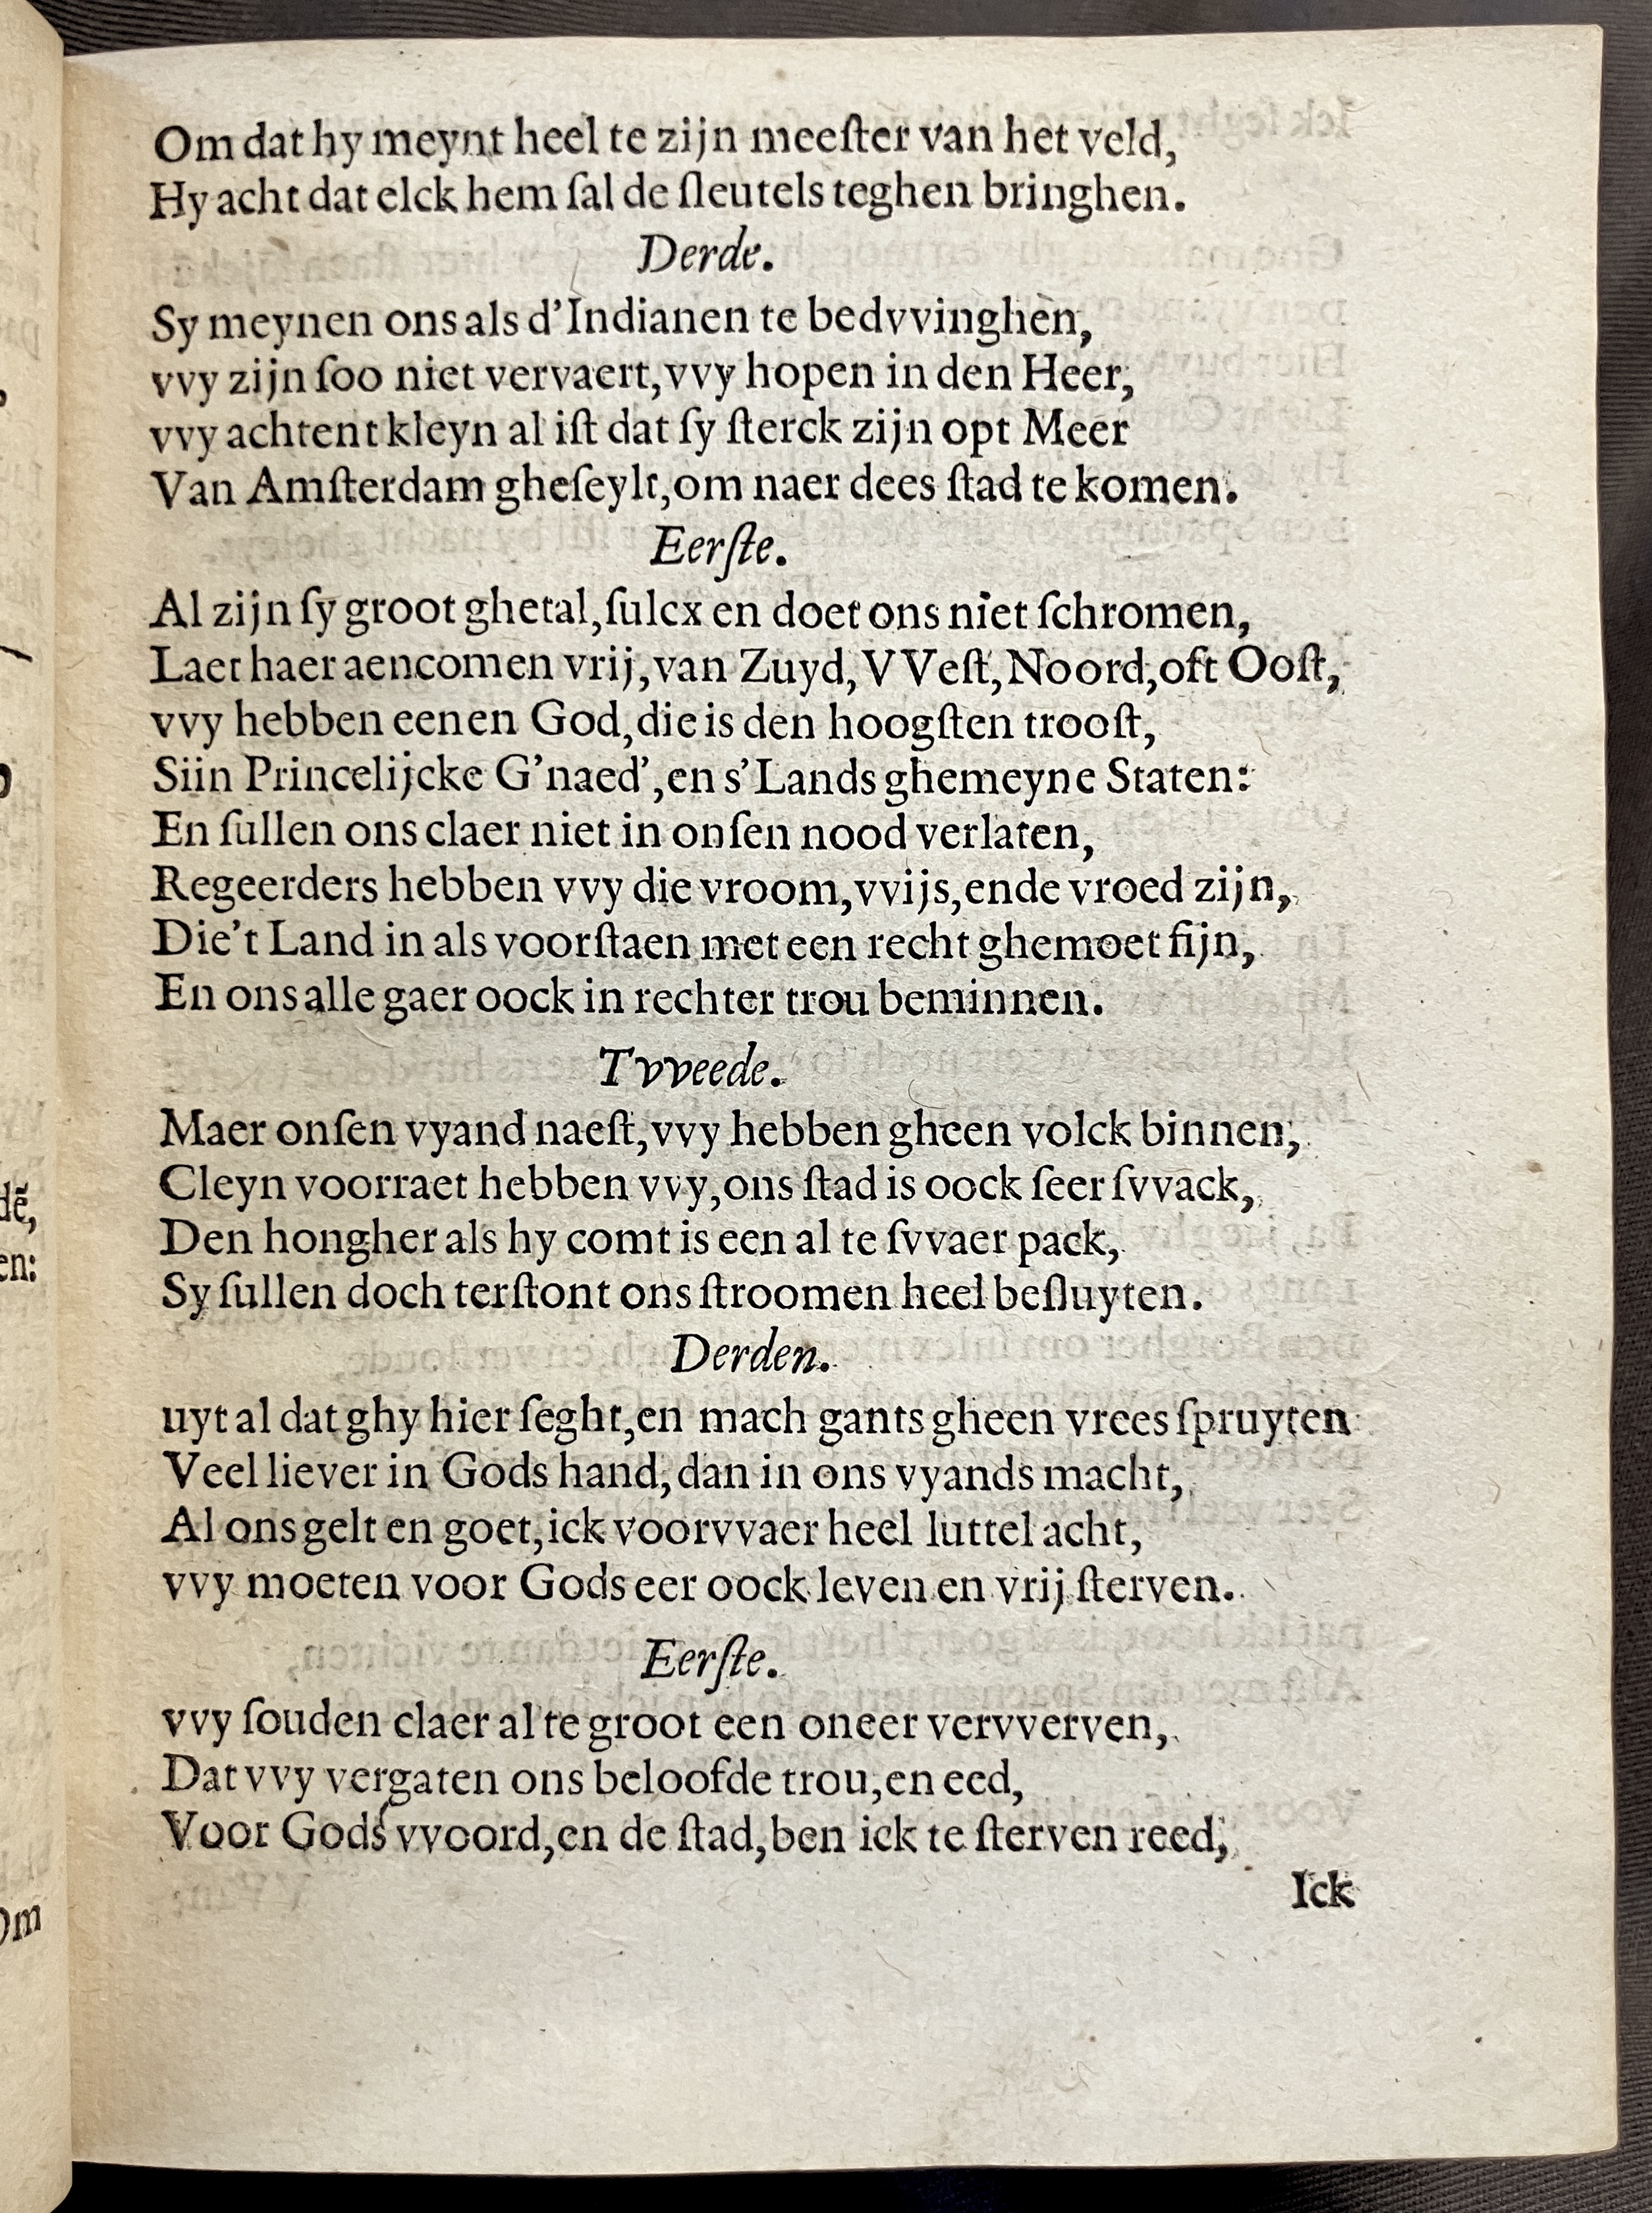 Om dat hy meynt heel te zijn meeſter van het veld,
Hy acht dat elck hem ſal de ſleutels teghen bringhen.
Derde.
Sy meynen ons als d'Indianen te bedvvinghen,
vvy zijn ſoo niet vervaert, vvy hopen in den Heer,
vvy achtent kleyn al iſt dat ſy ſterck zijn opt Meer
Van Amſterdam gheſeylt, om naer dees ſtad te komen.
Eerſte.
Al zijn ſy groot ghetal, ſulcx en doet ons niet ſchromen,
Laet haer aencomen vrij, van Zuyd, VVeſt, Noord, oft Ooſt,
vvy hebben eenen God, die is den hoogſten trooſt,
Siin Princelijcke G'naed', en s'Lands ghemeyne Staten:
En ſullen ons claer niet in onſen nood verlaten,
Regeerders hebben vvy die vroom, vvijs, ende vroed zijn,
Die't Land in als voorſtaen met een recht ghemoet fijn,
En ons alle gaer oock in rechter trou beminnen.
Tvveede.
Maer onſen vyand naeſt, vvy hebben gheen volck binnen,
Cleyn voorraet hebben vvy, ons ſtad is oock ſeer ſvvack,
Den hongher als hy comt is een al te ſvvaer pack,
Sy ſullen doch terſtont ons ſtroomen heel beſluyten.
Derden.
uyt al dat ghy hier ſeght, en mach gants gheen vrees ſpruyten
Veel liever in Gods hand, dan in ons vyands macht,
Al ons gelt en goet, ick voorvvaer heel luttel acht,
vvy moeten voor Gods eer oock leven en vrij ſterven.
Eerſte.
vvy ſouden claer al te groot een oneer vervverven,
Dat vvy vergaten ons beloofde trou, en eed,
Voor Gods vvoord, en de ſtad, ben ick te ſterven reed,
Ick